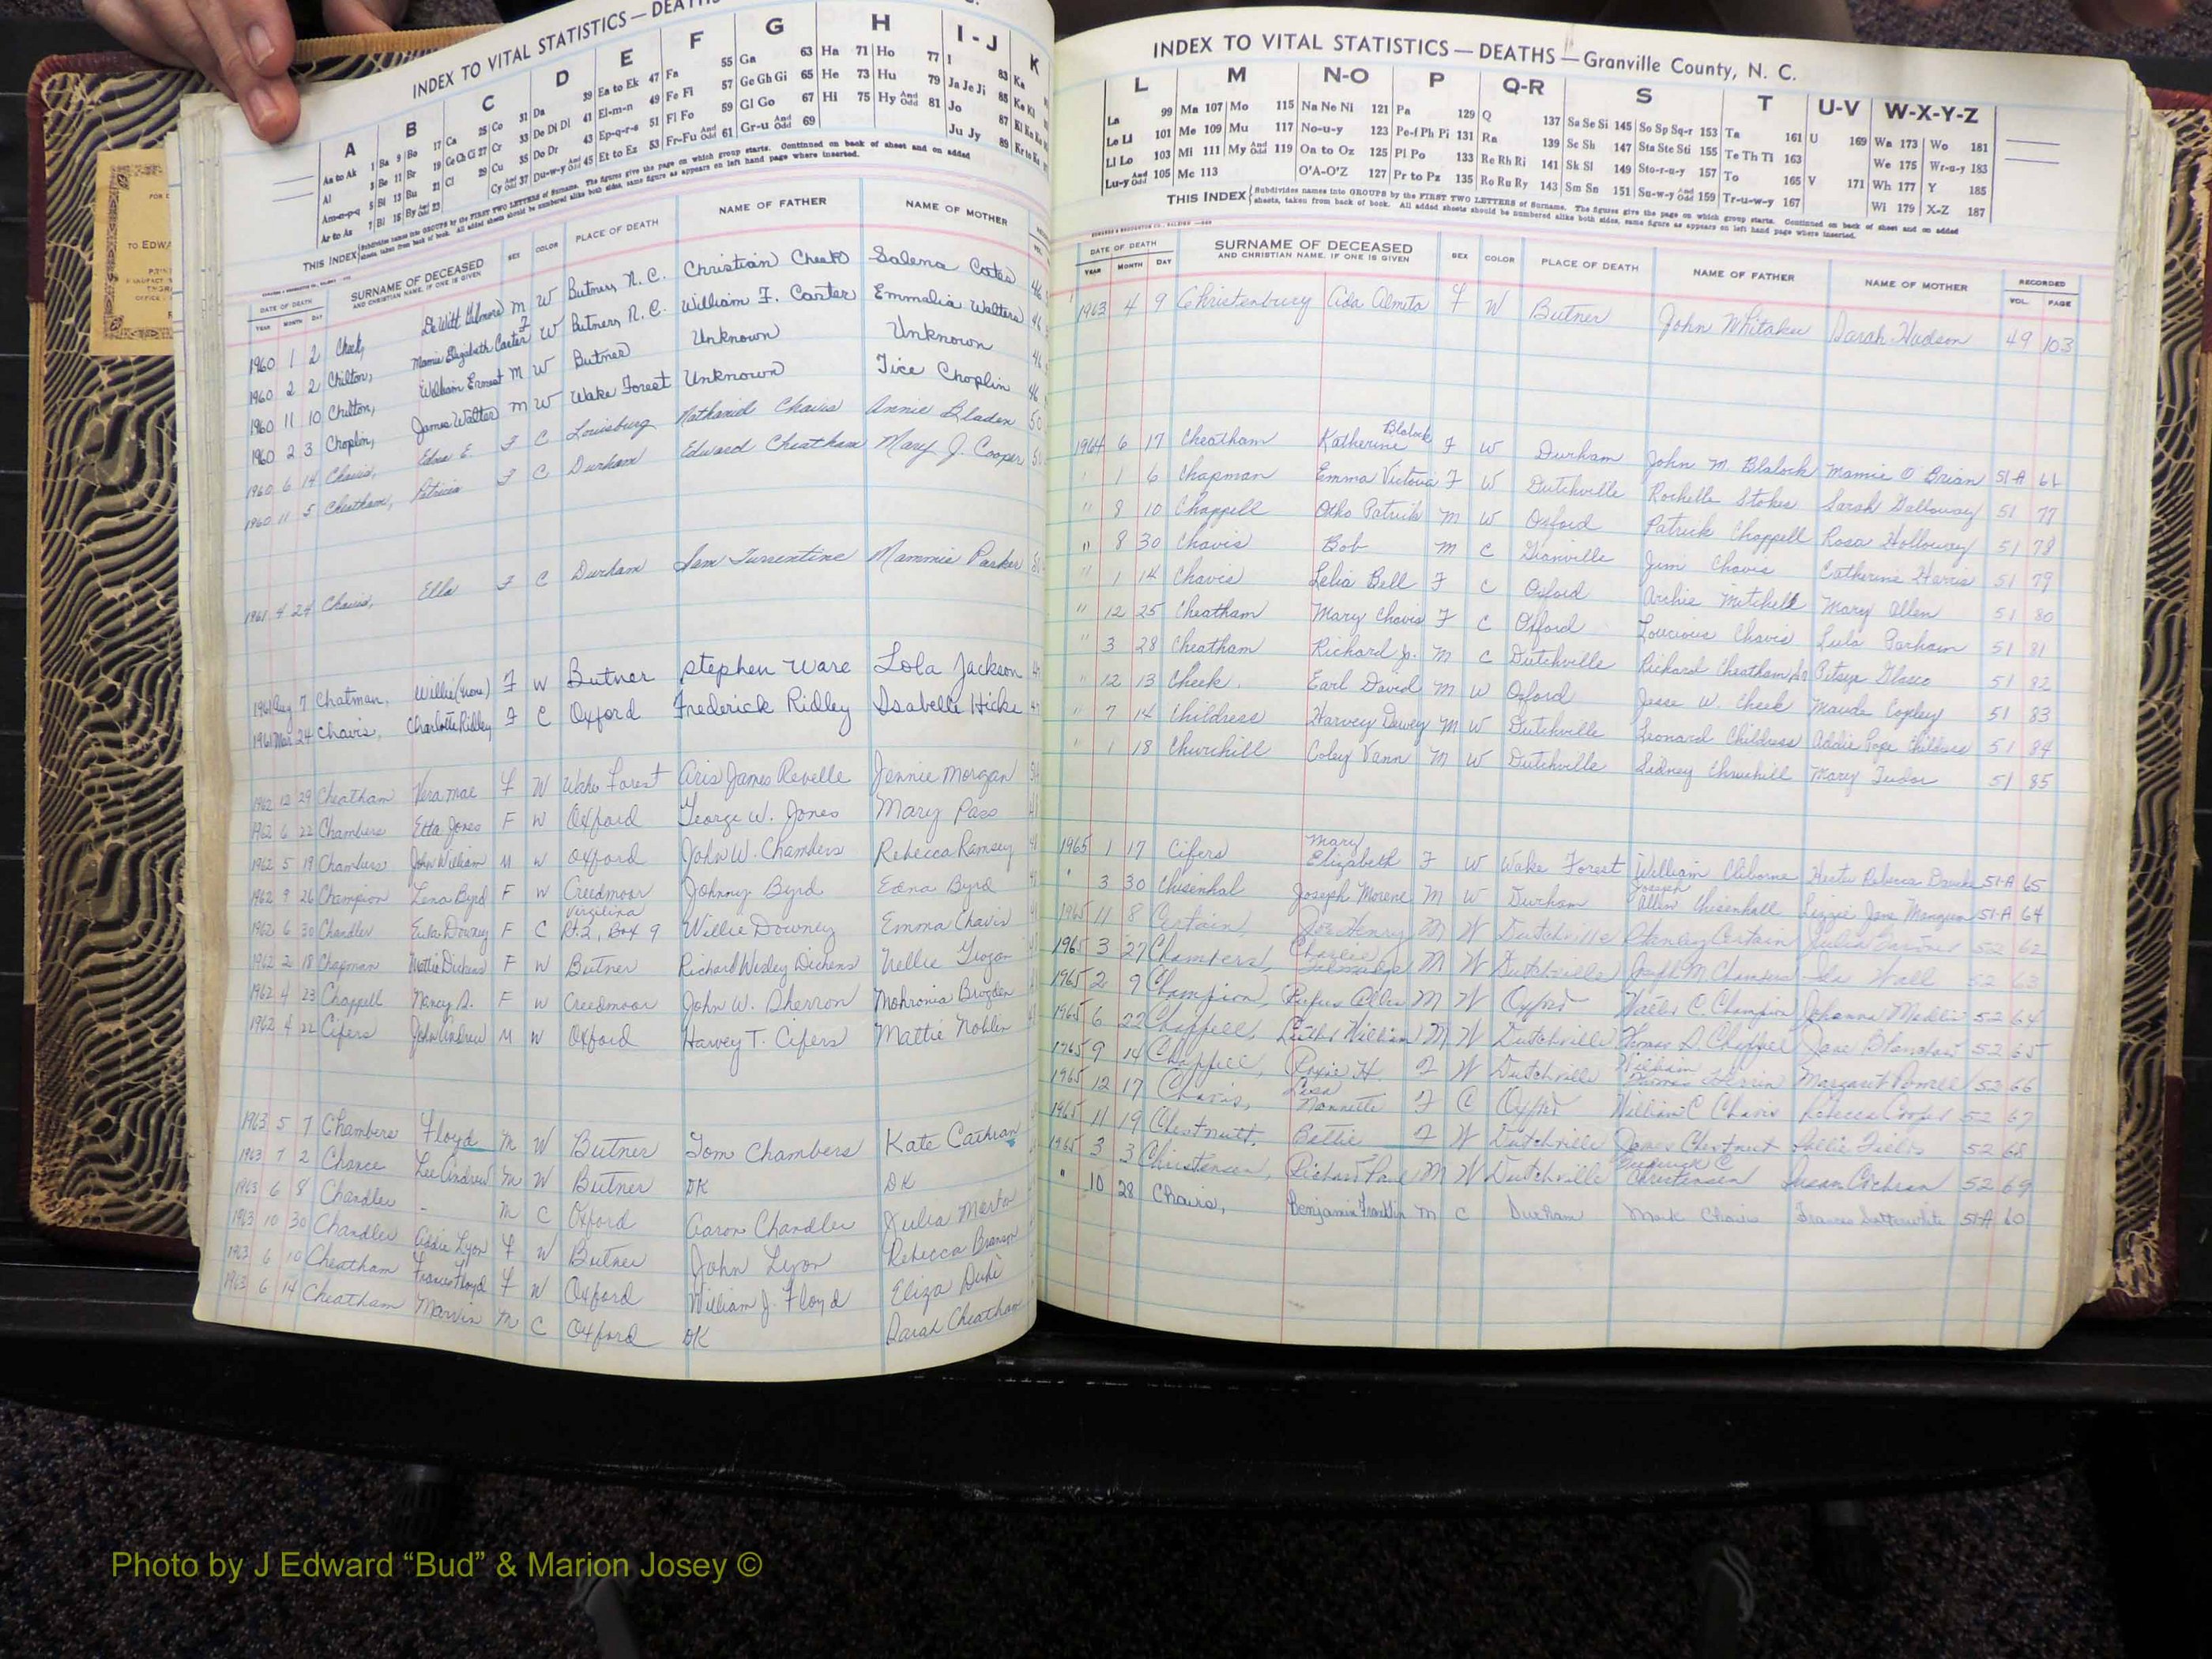 INDEX TO VITAL STATISTICS — DEATHS
A B C D E F G H I-J K
THIS INDEX
DATE OF DEATH
YEAR MONTH DAY
SURNAME OF DECEASED
AND CHRISTIAN NAME, IF ONE IS GIVEN
SEX COLOR PLACE OF DEATH NAME OF FATHER NAME OF MOTHER
1960 1 2 Cheek, DeWitt Gilmore M W Butner, N. C. Christian Cheek Salena Coates 46
1960 2 2 Chilton, Mamie Elizabeth Carter F W Butner, N. C. William F. Carter Emmalia Walters 46
1960 11 10 Chilton, William Ernest M W Butner Unknown Unknown 46
1960 2 3 Choplin, James Walter M W Wake Forest Unknown Tice Choplin 46
1960 6 14 Chavis, Edna E. F C Louisburg Nathaniel Chavis Annie Bladen 50
1960 11 5 Cheatham, Patricia F C Durham Edward Cheatham Mary J. Cooper
1961 4 24 Chavis, Ella F C Durham Sam Turrentine Mammie Parker
1961 Aug 7 Chatman, Willie (None) F W Butner Stephen Ware Lola Jackson
1961 Mar 24 Chavis, Charlotte Ridley F C Oxford Frederick Ridley Isabelle Hicks
1962 12 29 Cheatham Vera Mae F W Wake Forest Aris James Revelle Jennie Morgan
1962 6 22 Chambers Etta Jones F W Oxford George W. Jones Mary Pass
1962 5 19 Chambers John William M W Oxford John W. Chambers Rebecca Ramsey
1962 9 26 Champion Lena Byrd F W Creedmoor Johnny Byrd Edna Byrd
1962 6 30 Chandler Eula Downey F C Virgilina Rt. 2, Box 9 Willie Downey Emma Chavis
1962 2 18 Chapman Mattie Dickens F W Butner Richard Wesley Dickens Nellie Grogan
1962 4 23 Chappell Nancy S. F W Creedmoor John W. Sherron Mohronia Brogden
1962 4 22 Cifers John Andrew M W Oxford Harvey T. Cifers Mattie Noblin
1963 5 7 Chambers Floyd M W Butner Tom Chambers Kate Cathran
1963 7 2 Chance Lee Andrew M W Butner DK DK
1963 6 8 Chandler - M C Oxford Aaron Chandler Julia Merto
1963 10 30 Chandler Addie Lyon F W Butner John Lyon Rebecca Branson
1963 6 10 Cheatham Frances Floyd F W Oxford William J. Floyd Eliza Duke
1963 6 14 Cheatham Marvin M C Oxford DK Sarah Cheatham
INDEX TO VITAL STATISTICS — DEATHS — Granville County, N. C.
L M N-O P Q-R S T U-V W-X-Y-Z
La 99 Ma 107 Mo 115 Na Ne Ni 121 Pa 129 Q 137 Sa Se Si 145 So Sp Sq-r 153 Ta 161 U 169 Wa 173 Wo 181
Le Li 101 Me 109 Mu 117 No-u-y 123 Pe-f Ph Pi 131 Ra 139 Sc Sh 147 Sta Ste Sti 155 Te Th Ti 163 We 175 Wr-u-y 183
Ll Lo 103 Mi 111 My And Odd 119 On to Oz 125 Pl Po 133 Re Rh Ri 141 Sk Sl 149 Sto-r-u-y 157 To 165 V 171 Wh 177 Y 185
Lu-y And Odd 105 Mc 113 O'A-O'Z 127 Pr to Pz 135 Ro Ru Ry 143 Sm Sn 151 Su-w-y And Odd 159 Tr-u-w-y 167 Wi 179 X-Z 187
THIS INDEX Subdivides names into GROUPS by the FIRST TWO LETTERS of Surname. The figures give the page on which group starts. Continued on back of sheet and on added
sheets, taken from back of book. All added sheets should be numbered alike both sides, same figure as appears on left hand page where inserted.
DATE OF DEATH
YEAR MONTH DAY
SURNAME OF DECEASED
AND CHRISTIAN NAME, IF ONE IS GIVEN
SEX COLOR PLACE OF DEATH NAME OF FATHER NAME OF MOTHER RECORDED
VOL. PAGE
1963 4 9 Christenbury Ada Almeta F W Butner John Whitaker Sarah Hudson 49 103
1964 6 17 Cheatham Katherine Blalock F W Durham John M. Blalock Mamie O'Brian 51-A 61
" 1 6 Chapman Emma Victoria F W Dutchville Rochelle Stokes Sarah Galloway 51 77
" 8 10 Chappell Otho Patrick M W Oxford Patrick Chappell Rosa Holloway 51 78
" 8 30 Chavis Bob M C Granville Jim Chavis Catherine Harris 51 79
" 1 14 Chavis Lelia Bell F C Oxford Archie Mitchell Mary Allen 51 80
" 12 25 Cheatham Mary Chavis F C Oxford Loucious Chavis Lula Parham 51 81
" 3 28 Cheatham Richard Jr. M C Dutchville Richard Cheatham Sr Pitsye Glasco 51 82
" 12 13 Cheek. Earl David M W Oxford Jesse W. Cheek Maude Copley 51 83
" 7 14 Childress Harvey Dewey M W Dutchville Leonard Childress Addie Page Childress 51 84
" 1 18 Churchill Coley Vann M W Dutchville Sidney Churchill Mary Tudor 51 85
1965 1 17 Cifers Mary Elizabeth F W Wake Forest William Cliborne Hester Rebecca 51-A 65
" 3 30 Chisenhal Joseph Morene M W Durham Joseph Allen Chisenhall Lizzie Jane Mangum 51-A 64
1965 11 8 Certain, Joe Henry M W Dutchville Stanley Certain Julia 52 62
1965 3 27 Chambers, Charlie Talmadge M W Dutchville M. Chambers Ida Wall 52 63
1965 2 9 Champion, Rufus Allen M W Oxford Walter C. Champion Johanna Medlin 52 64
1965 6 22 Chappell, Luther William M W Dutchville Thomas D. Chappell Jane 52 65
1965 9 14 Chappell, Roxie H. F W Dutchville William Thomas Margaret Powell 52 66
1965 12 17 Chavis, Lisa Nannette F C Oxford William C Chavis Rebecca Cooper 52 67
1965 11 19 Chestnutt, Bettie F W Dutchville James Chestnut Sallie Fields 52 68
1965 3 3 Christensen, Richard Paul M W Dutchville Frederick C. Christensen Susan Cochran 52 69
" 10 28 Chavis, Benjamin Franklin M C Durham Mack Chavis Frances Satterwhite 51-A 60
Photo by J Edward “Bud” & Marion Josey ©